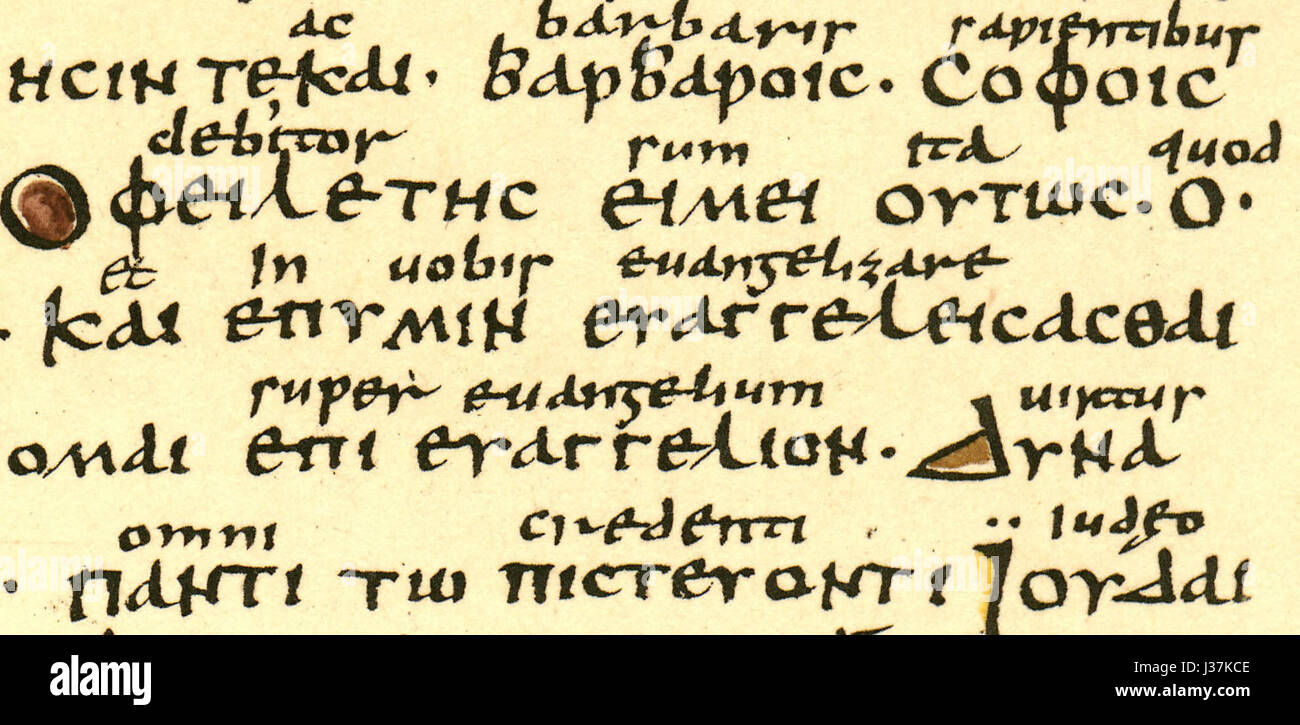 ac barbaris sapientibus
ΗϹΙΝ ΤΕ ΚΑΙ· ΒΑΡΒΑΡΟΙϹ· ϹΟΦΟΙϹ
debitor sum ita quod
ΟΦΕΙΛΕΤΗϹ ΕΙΜΕΙ ΟΥΤΩϹ· Ο·
et In uobis euangelizare
· ΚΑΙ ΕΠΥΜΙΝ ΕΥΑΓΓΕΛΕΙϹΑϹΘΑΙ
super euangelium uirtus
ΟΜΑΙ ΕΠΙ ΕΥΑΓΓΕΛΙΟΝ· ΔΥΝΑ
omni credenti ·· Iudęo
· ΠΑΝΤΙ ΤΩ ΠΙϹΤΕΥΟΝΤΙ ΙΟΥΔΑΙ
alamy stock photo
J37KCE
www.alamy.com